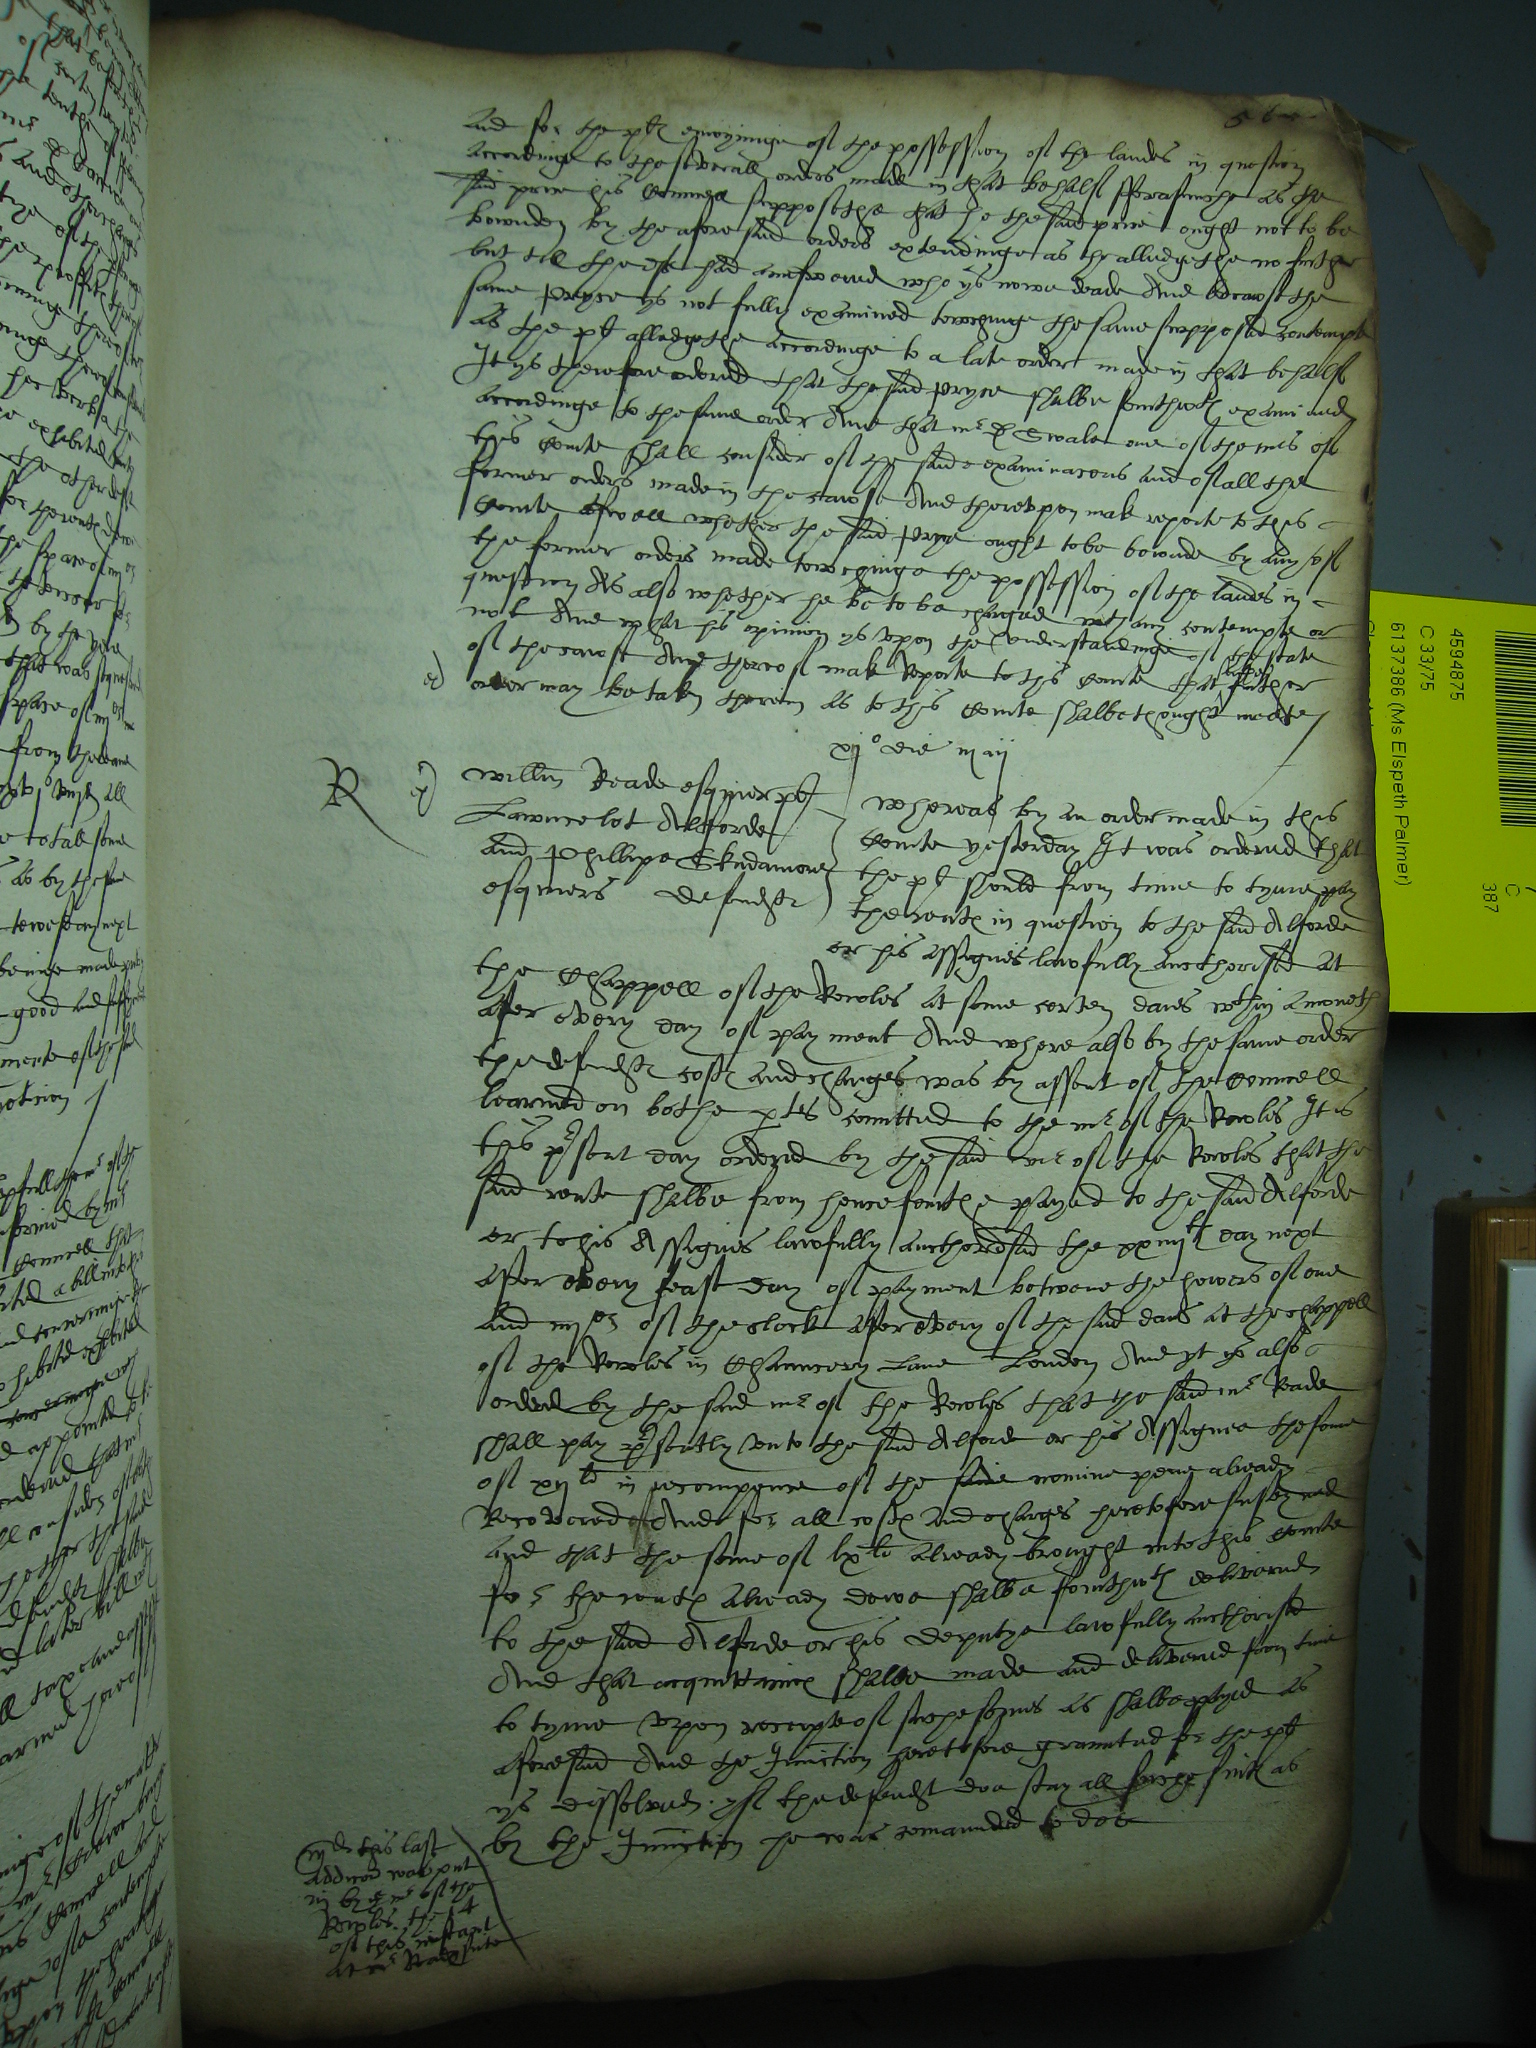 And for the pl enioyinge of the possession of the landes in question
accordinge to the severall orders made in that behalf fforasmuche as the
said price his Councell supposethe that he the said price ought not to be
bounden by the aforesaid orders extendinge as he alledgethe no further
but till the def had aunswered who ys nowe deade And because the
same Pryce ys not fully examined towchinge the same supposed contempte
as the pl alledgethe accordinge to a late order made in that behalf
It ys therefore ordered that the said Pryce shalbe forthwth examined
accordinge to the same order And that mr D Swale one of the mrs of
this Courte shall consider of the said examinacons and of all the
former orders made in the cawse And therevpon mak reporte to this
Courte aswell whether the said Pryce ought to be bounde by any of
the former orders made towchinge the possession of the landes in
question As also whether he be to be charged wth any contempte or
not And what his opinion ys vpon the vnderstandinge of the state
of the cawse And therof mak Reporte to this Courte that further
order may be taken therein as to this Courte shalbe thought meete
xjo die maij
R
Willm Reade esquier pl
Lawncelot Alforde
and Phillipe Skudamore
esquiers defendts
Whereas by an order made in this
Courte yesterday It was ordered that
the pl should from time to tyme pay
the rents in question to the said Alforde
or his assignes lawfully aucthorised at
the Chappell of the Rowles at some certen daies wthin a moneth
after every day of payment And where also by the same order
the defendts costs and charges was by assent of the Councell
learned on bothe ptes comitted to the mr of the Rowles It is
this psent day ordered by the said mr of the Rowles that the
said rente shalbe from henceforthe payed to the said Alforde
or to his Assignes lawfully aucthorised the xxviijth day next
after every feast day of payment betwene the howers of one
and iiijor of the clock after every of the said daies at the chappell
of the Rowles in Chauncery Lane London And yt ys also
ordered by the said mr of the Rowles that the said mr Reade
shall pay psently vnto the said Alforde or his Assignes the some
of xijli in recompence of the nomine pene already
Recovered And for all costs and charges heretofore susteyned
and that the some of lxli already brought into this Courte
for the rents already dewe shalbe forthwth delivered
to the said Alforde or his deputye lawfully aucthorised
And that acquittances shalbe made and delivered from time
to tyme vpon receipte of suche somes as shalbe payed as
aforesaid And the Iniunction heretofore graunted for the pl
ys dissolved. yf the defendt doe stay all suche suits as
by the Iniunction he was comaunded to doe
md this last
addicon was put
in by the mr of the
Rowles the 14
of this instant
at mr Reades sute
4594875
C 33/75
6137386 (Ms Elspeth Palmer)
C
387